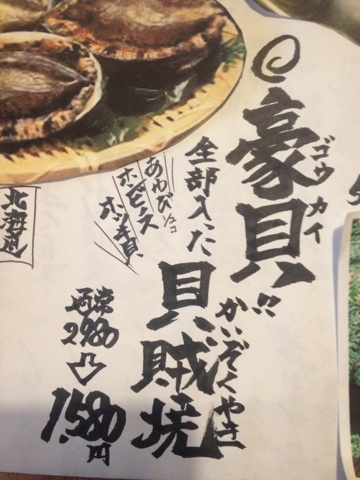 豪貝!!
ゴウカイ
全部入った
貝賊焼
かいぞくやき
あわび1/2コ
ホッキ貝
通常
2980
1,580円
北海道